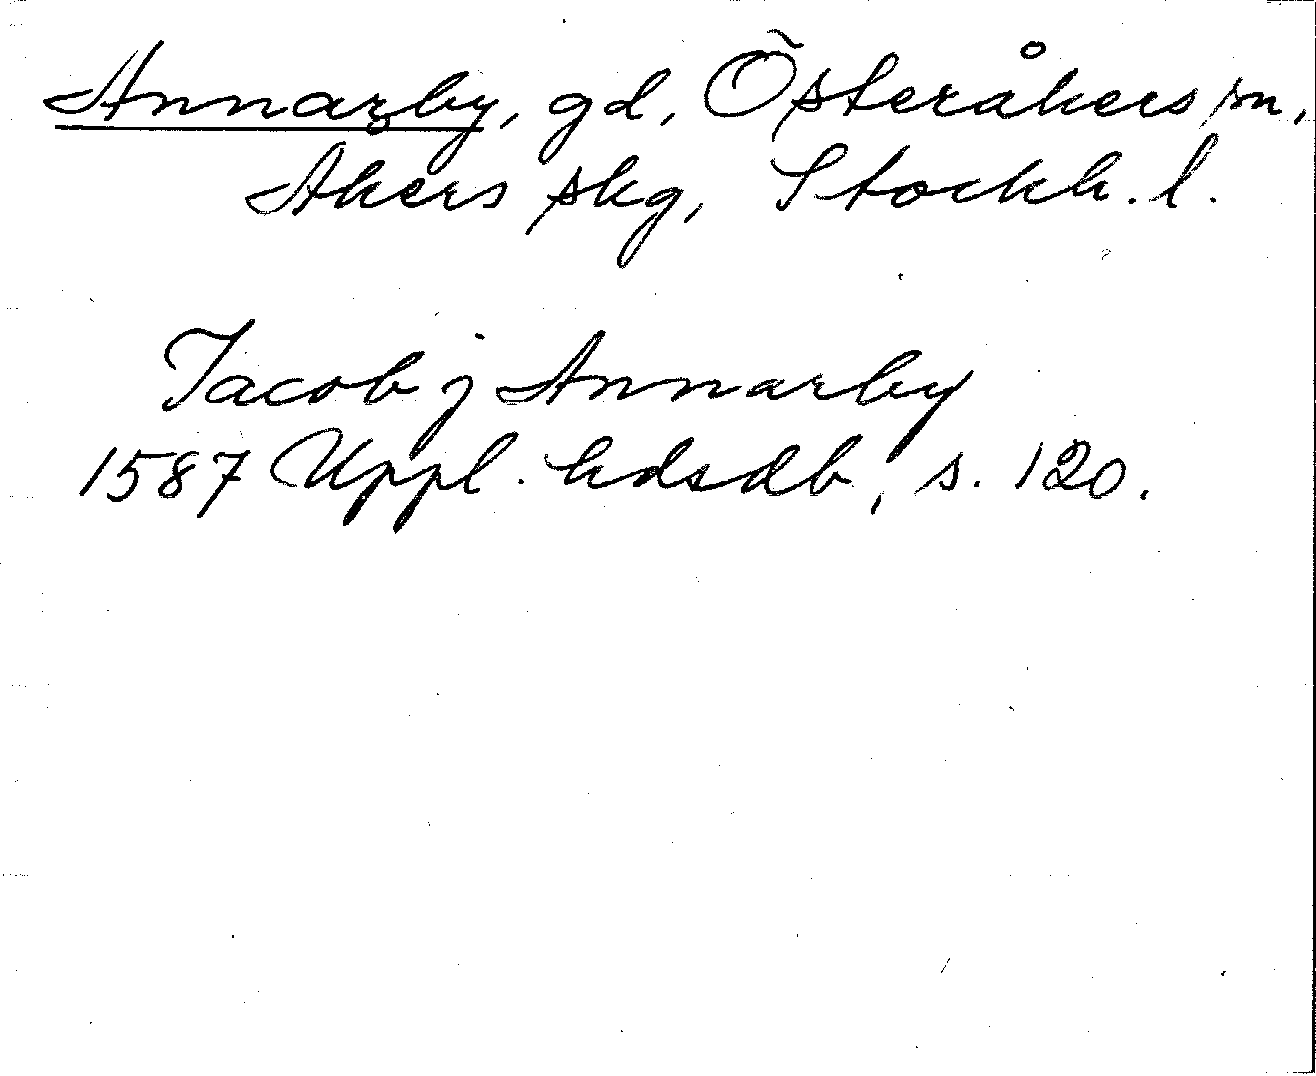 Annarby, gd, Österåkers sn,
Akers skg, Stockh. l.
Jacob j Annarby
1587 Uppl. hdsdb, s. 120.